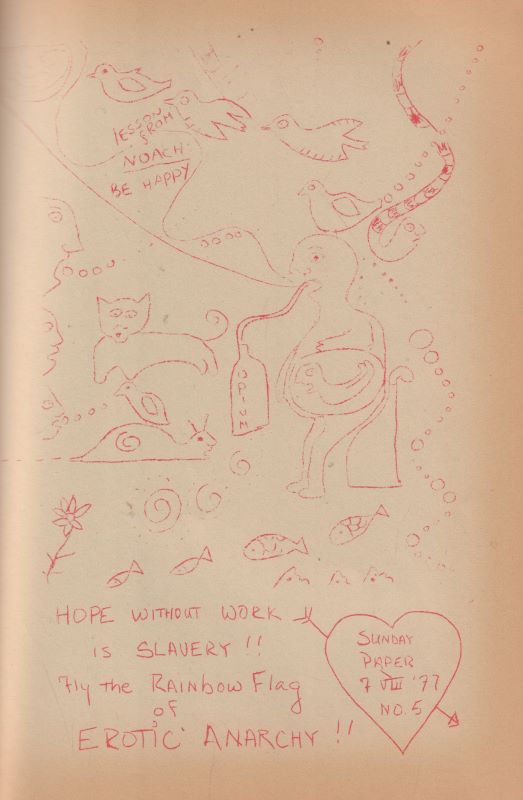 LESSON
FROM
NOACH
BE HAPPY
OPIUM
HOPE WITHOUT WORK
IS SLAVERY !!
Fly the RAINBOW FLAG
of
EROTIC ANARCHY !!
SUNDAY
PAPER
7 VIII '77
NO. 5